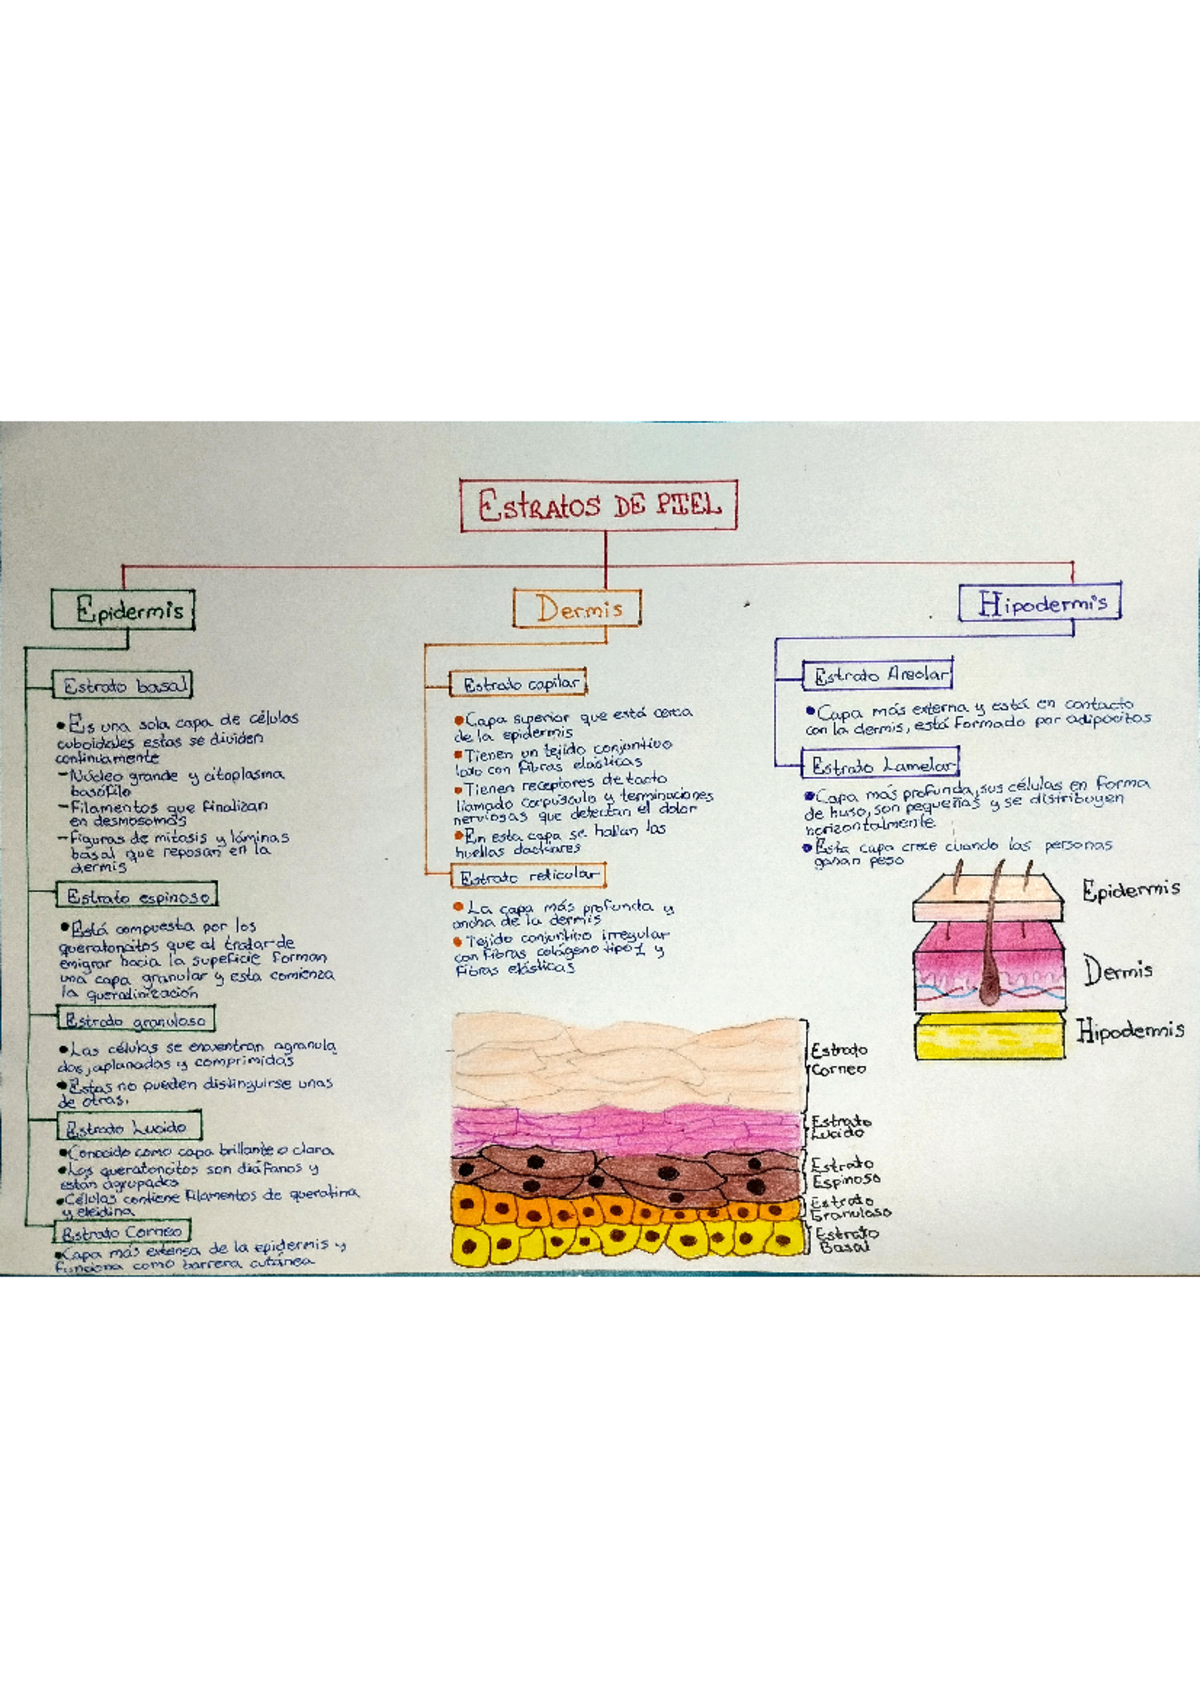 EstRAtOS DE PIEL
Epidermis
Estrato basal
• Es una sola capa de células
cuboidales estas se dividen
continuamente
- Núcleo grande y citoplasma
basófilo
- Filamentos que finalizan
en desmosomas
- Figuras de mitosis y láminas
basal que reposan en la
dermis
Estrato espinoso
• Está compuesta por los
queratoncitos que al tratar de
emigrar hacia la supeficie forman
una capa granular y esta comienza
la queratinización
Estrato granuloso
• Las células se encuentran agranula
das, aplanadas y comprimidas
• Estas no pueden distinguirse unas
de otras.
Estrato Lucido
• Conocido como capa brillante o clara
• Los queratoncitos son diáfanos y
están agrupados
• Células contiene filamentos de queratina
y eleidina
Estrato Corneo
• Capa más extensa de la epidermis y
funciona como barrera cutánea
Dermis
Estrato capilar
• Capa superior que está cerca
de la epidermis
• Tienen un tejido conjuntivo
laxo con fibras elasticas
• Tienen receptores de tacto
llamado corpúsculo y terminaciones
nerviosas que detectan el dolor
• En esta capa se hallan las
huellas dactilares
Estrato reticular
• La capa más profunda y
ancha de la dermis
• Tejido conjuntivo irregular
con fibras colágeno tipo 1 y
fibras elásticas
Hipodermis
Estrato Areolar
• Capa más externa y está en contacto
con la dermis, está formado por adipocitos
Estrato Lamelar
• Capa más profunda, sus células en forma
de huso, son pequeñas y se distribuyen
horizontalmente.
• Esta capa crece cuando las personas
ganan peso
Epidermis
Dermis
Hipodermis
Estrato
Corneo
Estrato
Lucido
Estrato
Espinoso
Estrato
Granuloso
Estrato
Basal